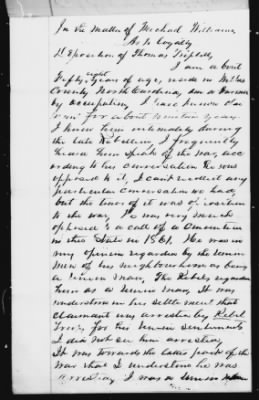 In the matter of Michael Williams
As to Loyalty
Deposition of Thomas Triplett
I am about
Fifty eight years of age, reside in Wilkes
County North Carolina, am a Farmer
by occupation, I have known
for about
I knew him intimately during
the late Rebellion, I frequently
heard him speak of the war, acc
ording to his conversation he was
opposed to it, I cant recollect any
particular conversation we had,
but the tenor of it was opposition
to the war, he was very much
opposed to a call of a convention
in this State in 1861. He was in
my opinion regarded by the Union
men of his neighborhood as being
a Union man, The Rebels regarded
him as a Union man, It was
understood in his settlement that
claimant was arrested by Rebel
Troops for his Union sentiments
I did not see him arrested,
It was towards the latter part of the
war that I understood he was
arrested, I was a Union